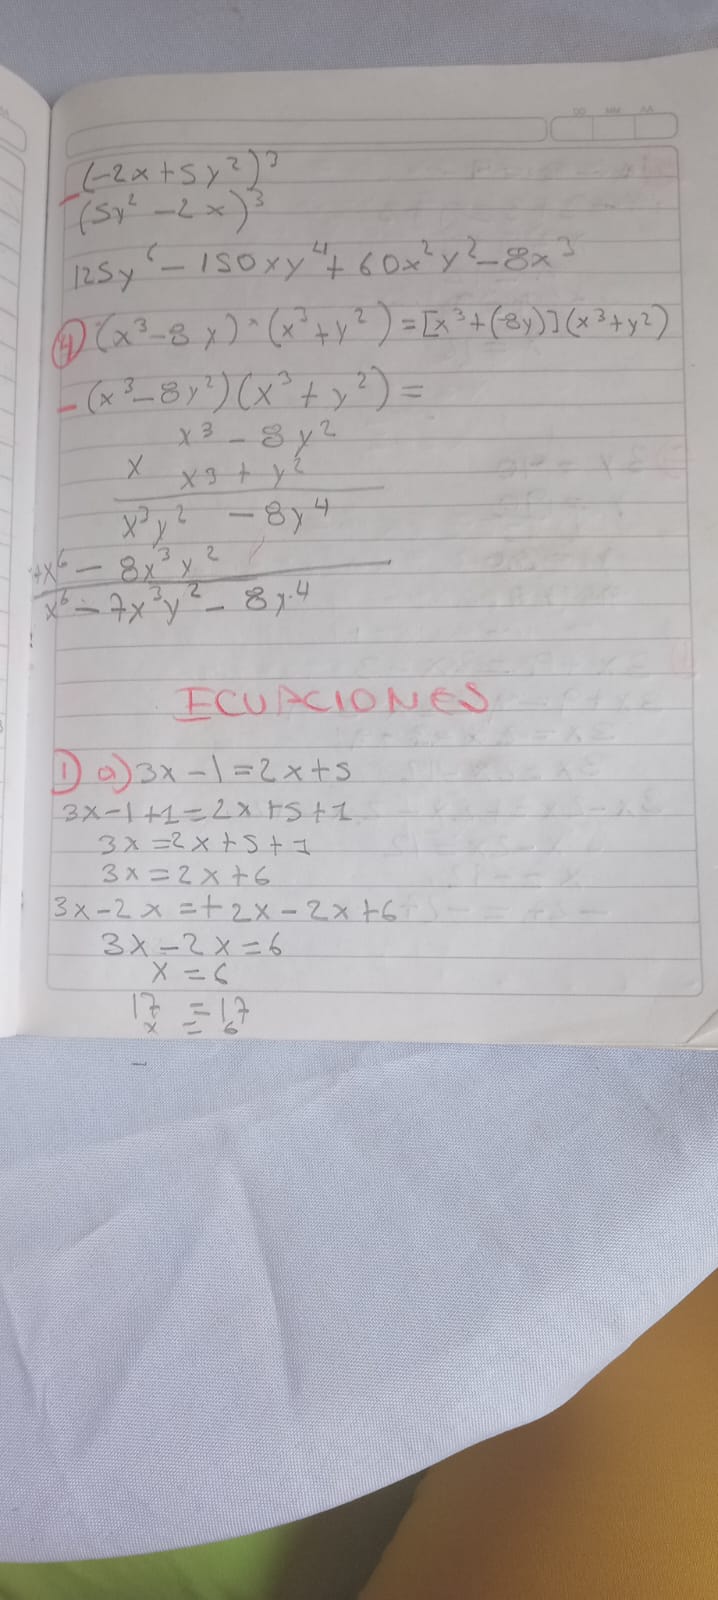 DD MM AA
(-2x+5y²)³
(5y²-2x)³
125y⁶-150xy⁴+60x²y²-8x³
4) (x³-8y)·(x³+y²)=[x³+(-8y)](x³+y²)
-(x³-8y²)(x³+y²)=
x³-8y²
x x³+y²
x³y² -8y⁴
+x⁶-8x³y²
x⁶-7x³y²-8y⁴
ECUACIONES
1) a) 3x-1=2x+5
3x-1+1=2x+5+1
3x=2x+5+1
3x=2x+6
3x-2x=+2x-2x+6
3x-2x=6
x=6
17=17
x=6